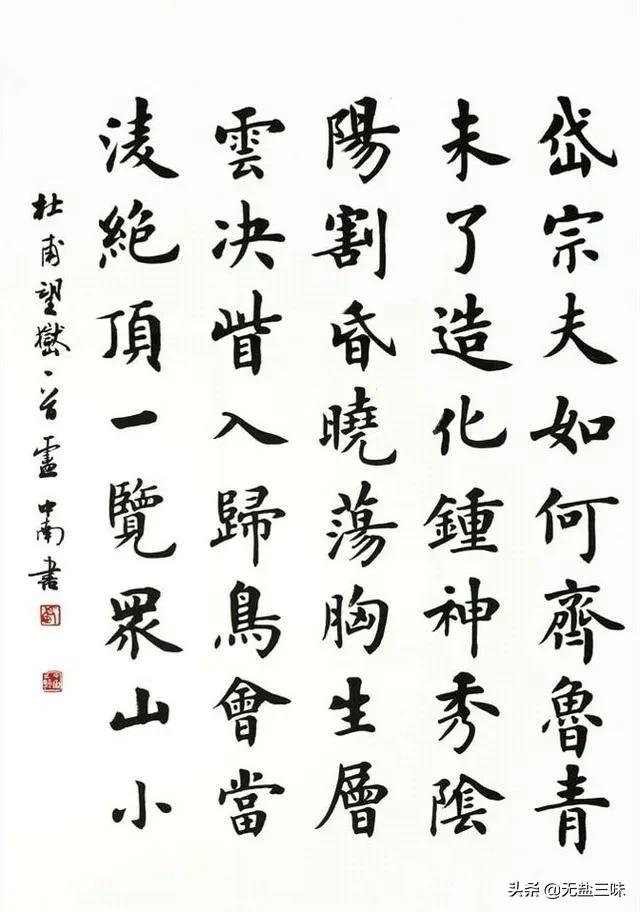 岱宗夫如何齊魯青
未了造化鍾神秀陰
陽割昏曉蕩胸生層
雲决眥入歸鳥會當
淩絕頂一覽眾山小
杜甫望嶽一首盧中南書
头条 @无盐三味